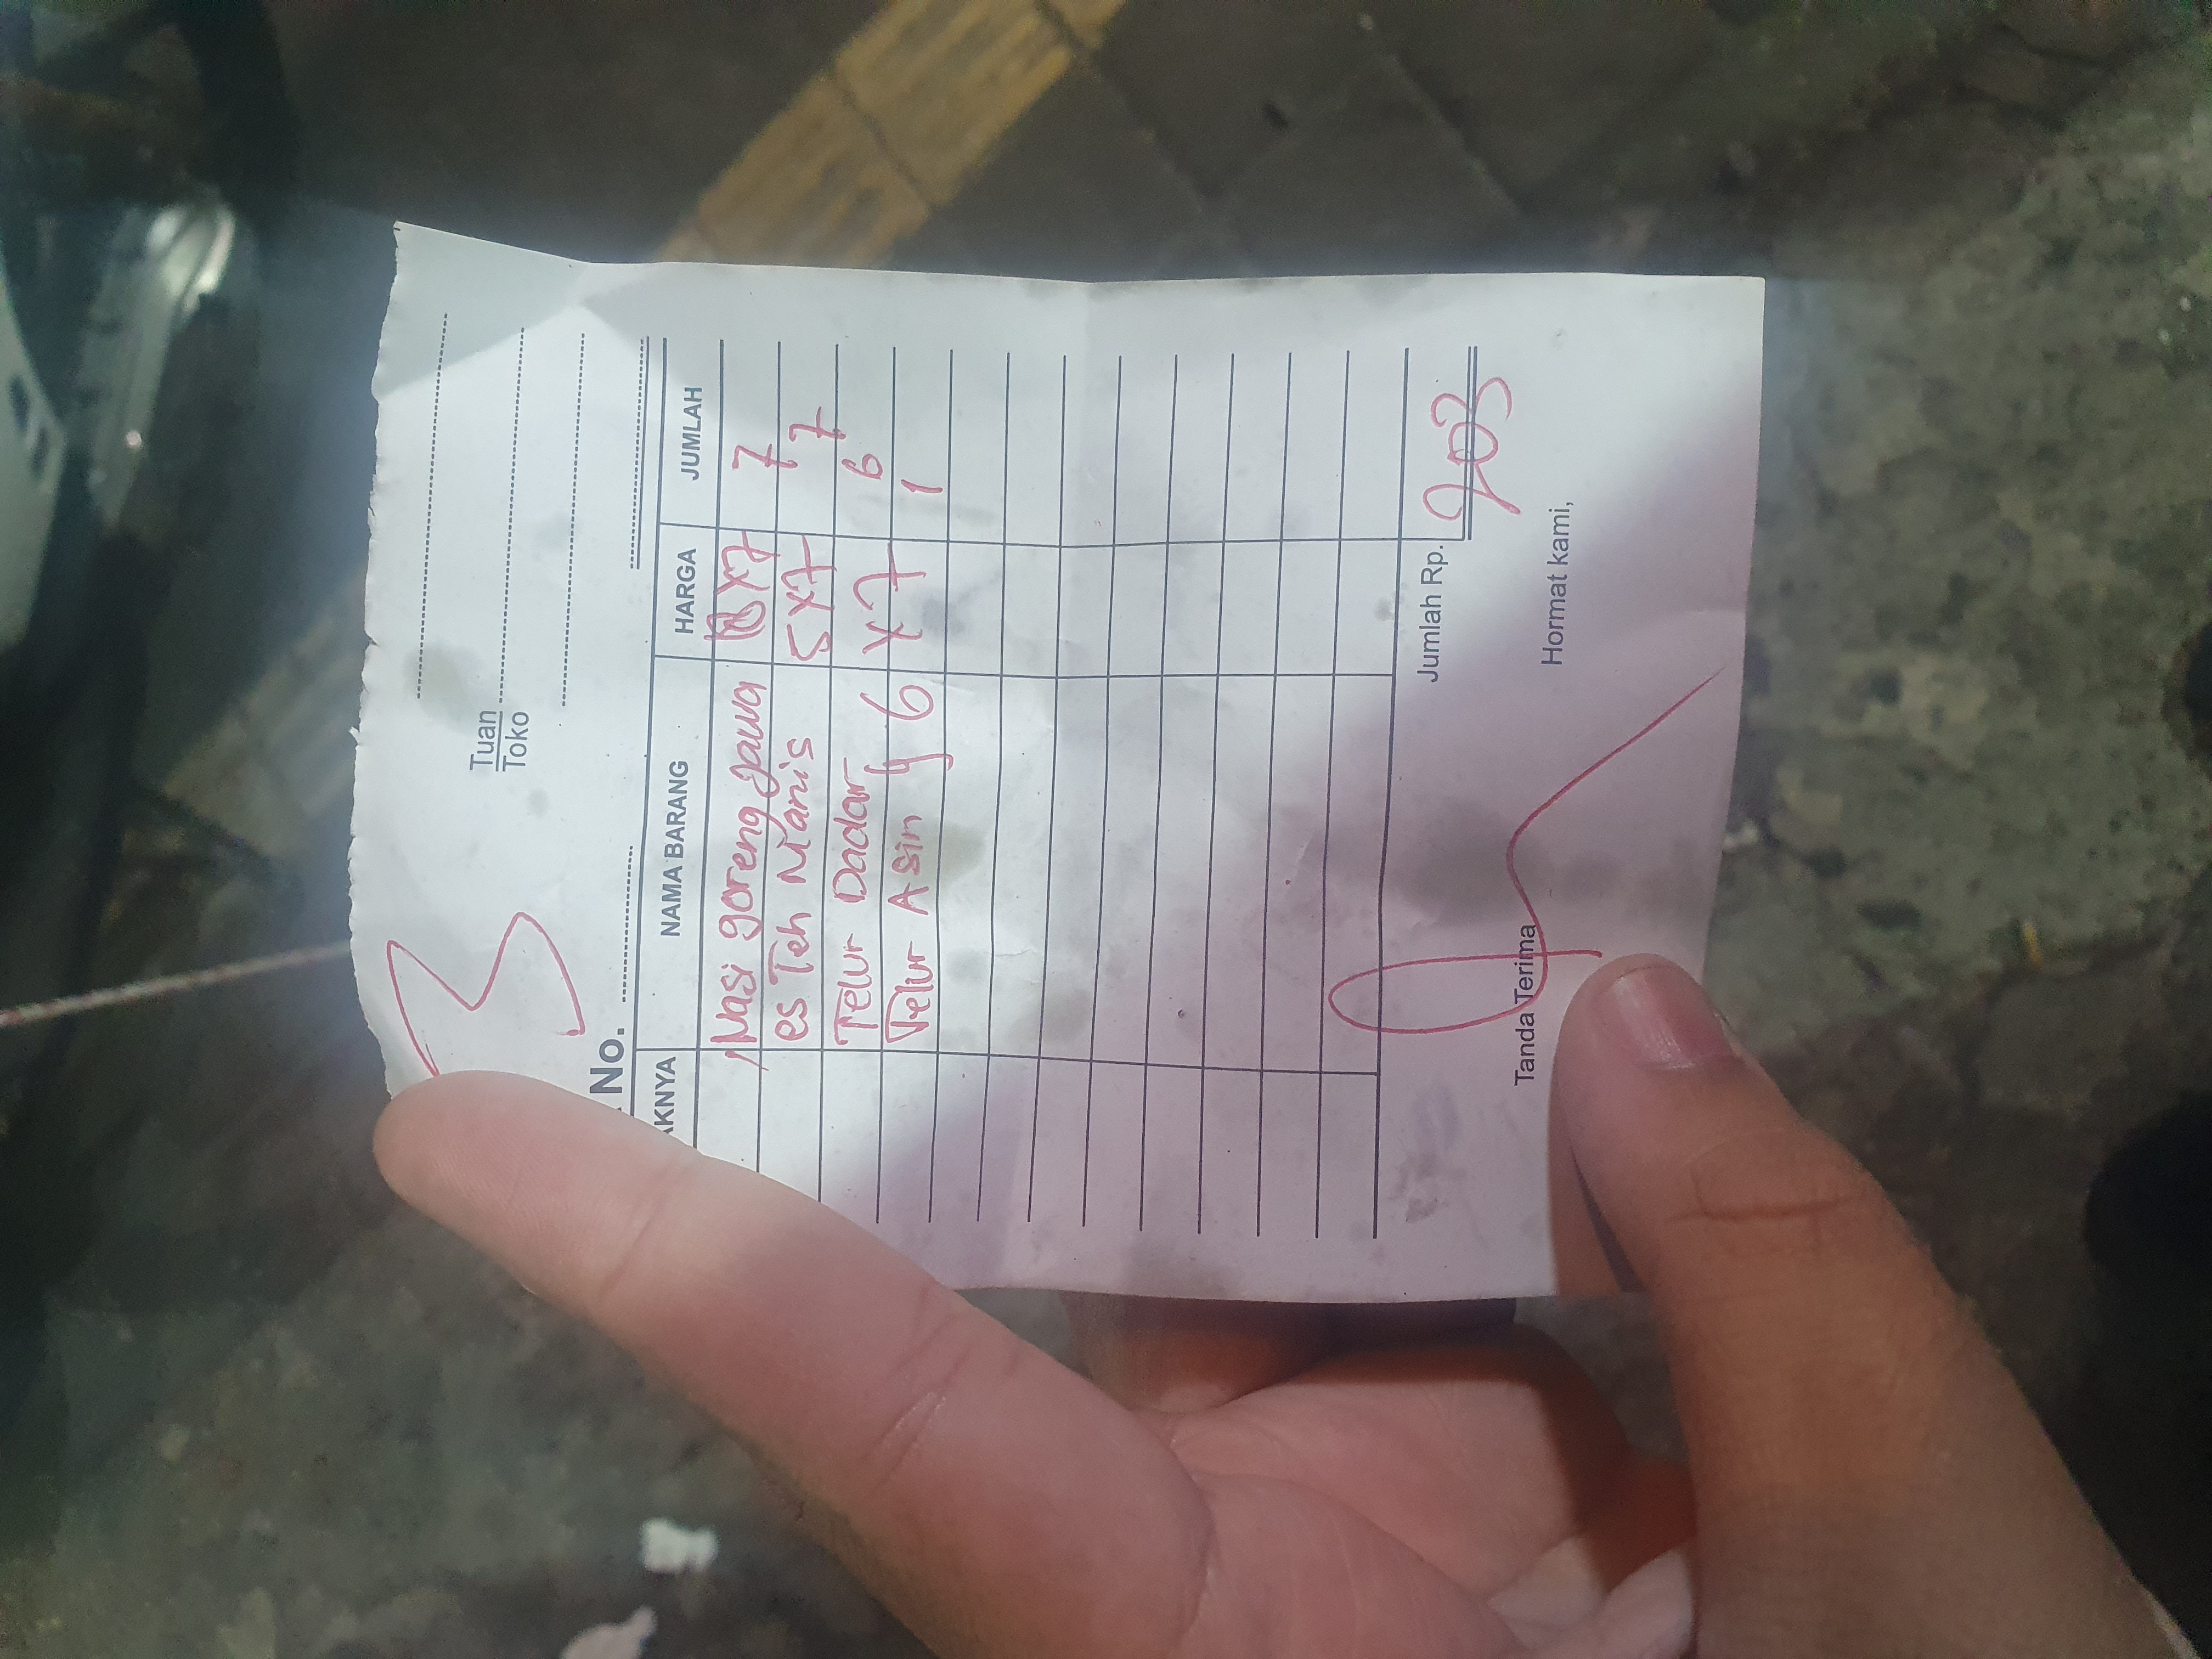 3
Tuan
Toko
No.
AKNYA NAMA BARANG HARGA JUMLAH
Nasi goreng Jawa 18 x 7 7
es Teh Manis 5 x 7 7
Telur Dadar 6
Telur Asin } 6 x 7 1
Jumlah Rp. 203
Tanda Terima
Hormat kami,